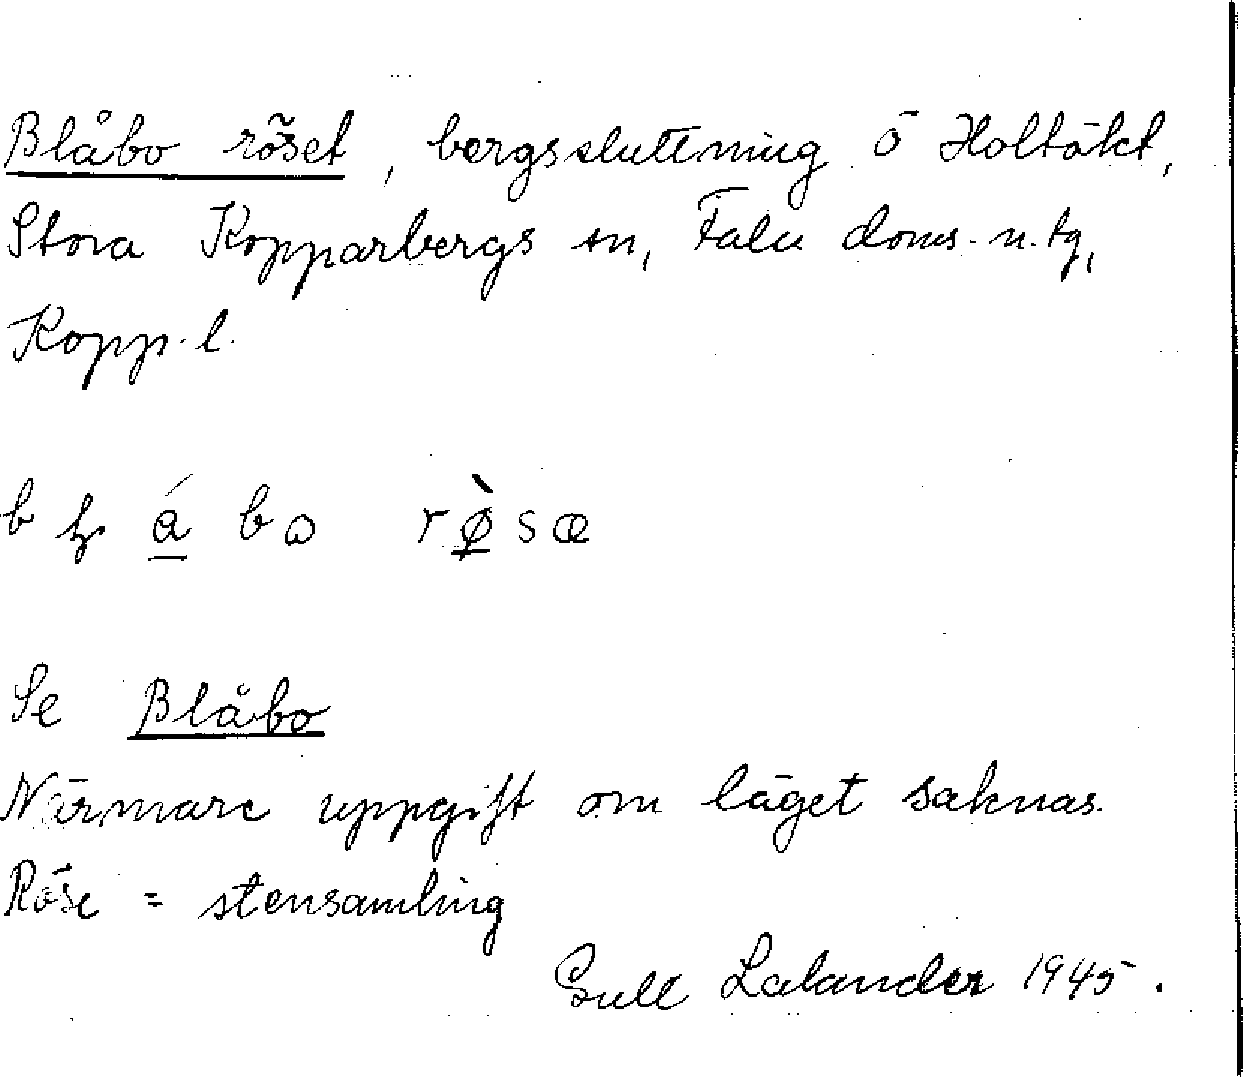 Blåbo röset, bergssluttning Ö Holtäkt,
Stora Kopparbergs sn, Falu doms. n. tg,
Kopp. l.
Se Blåbo
Närmare uppgift om läget saknas.
Röse = stensamling
Gull Lalander 1945.